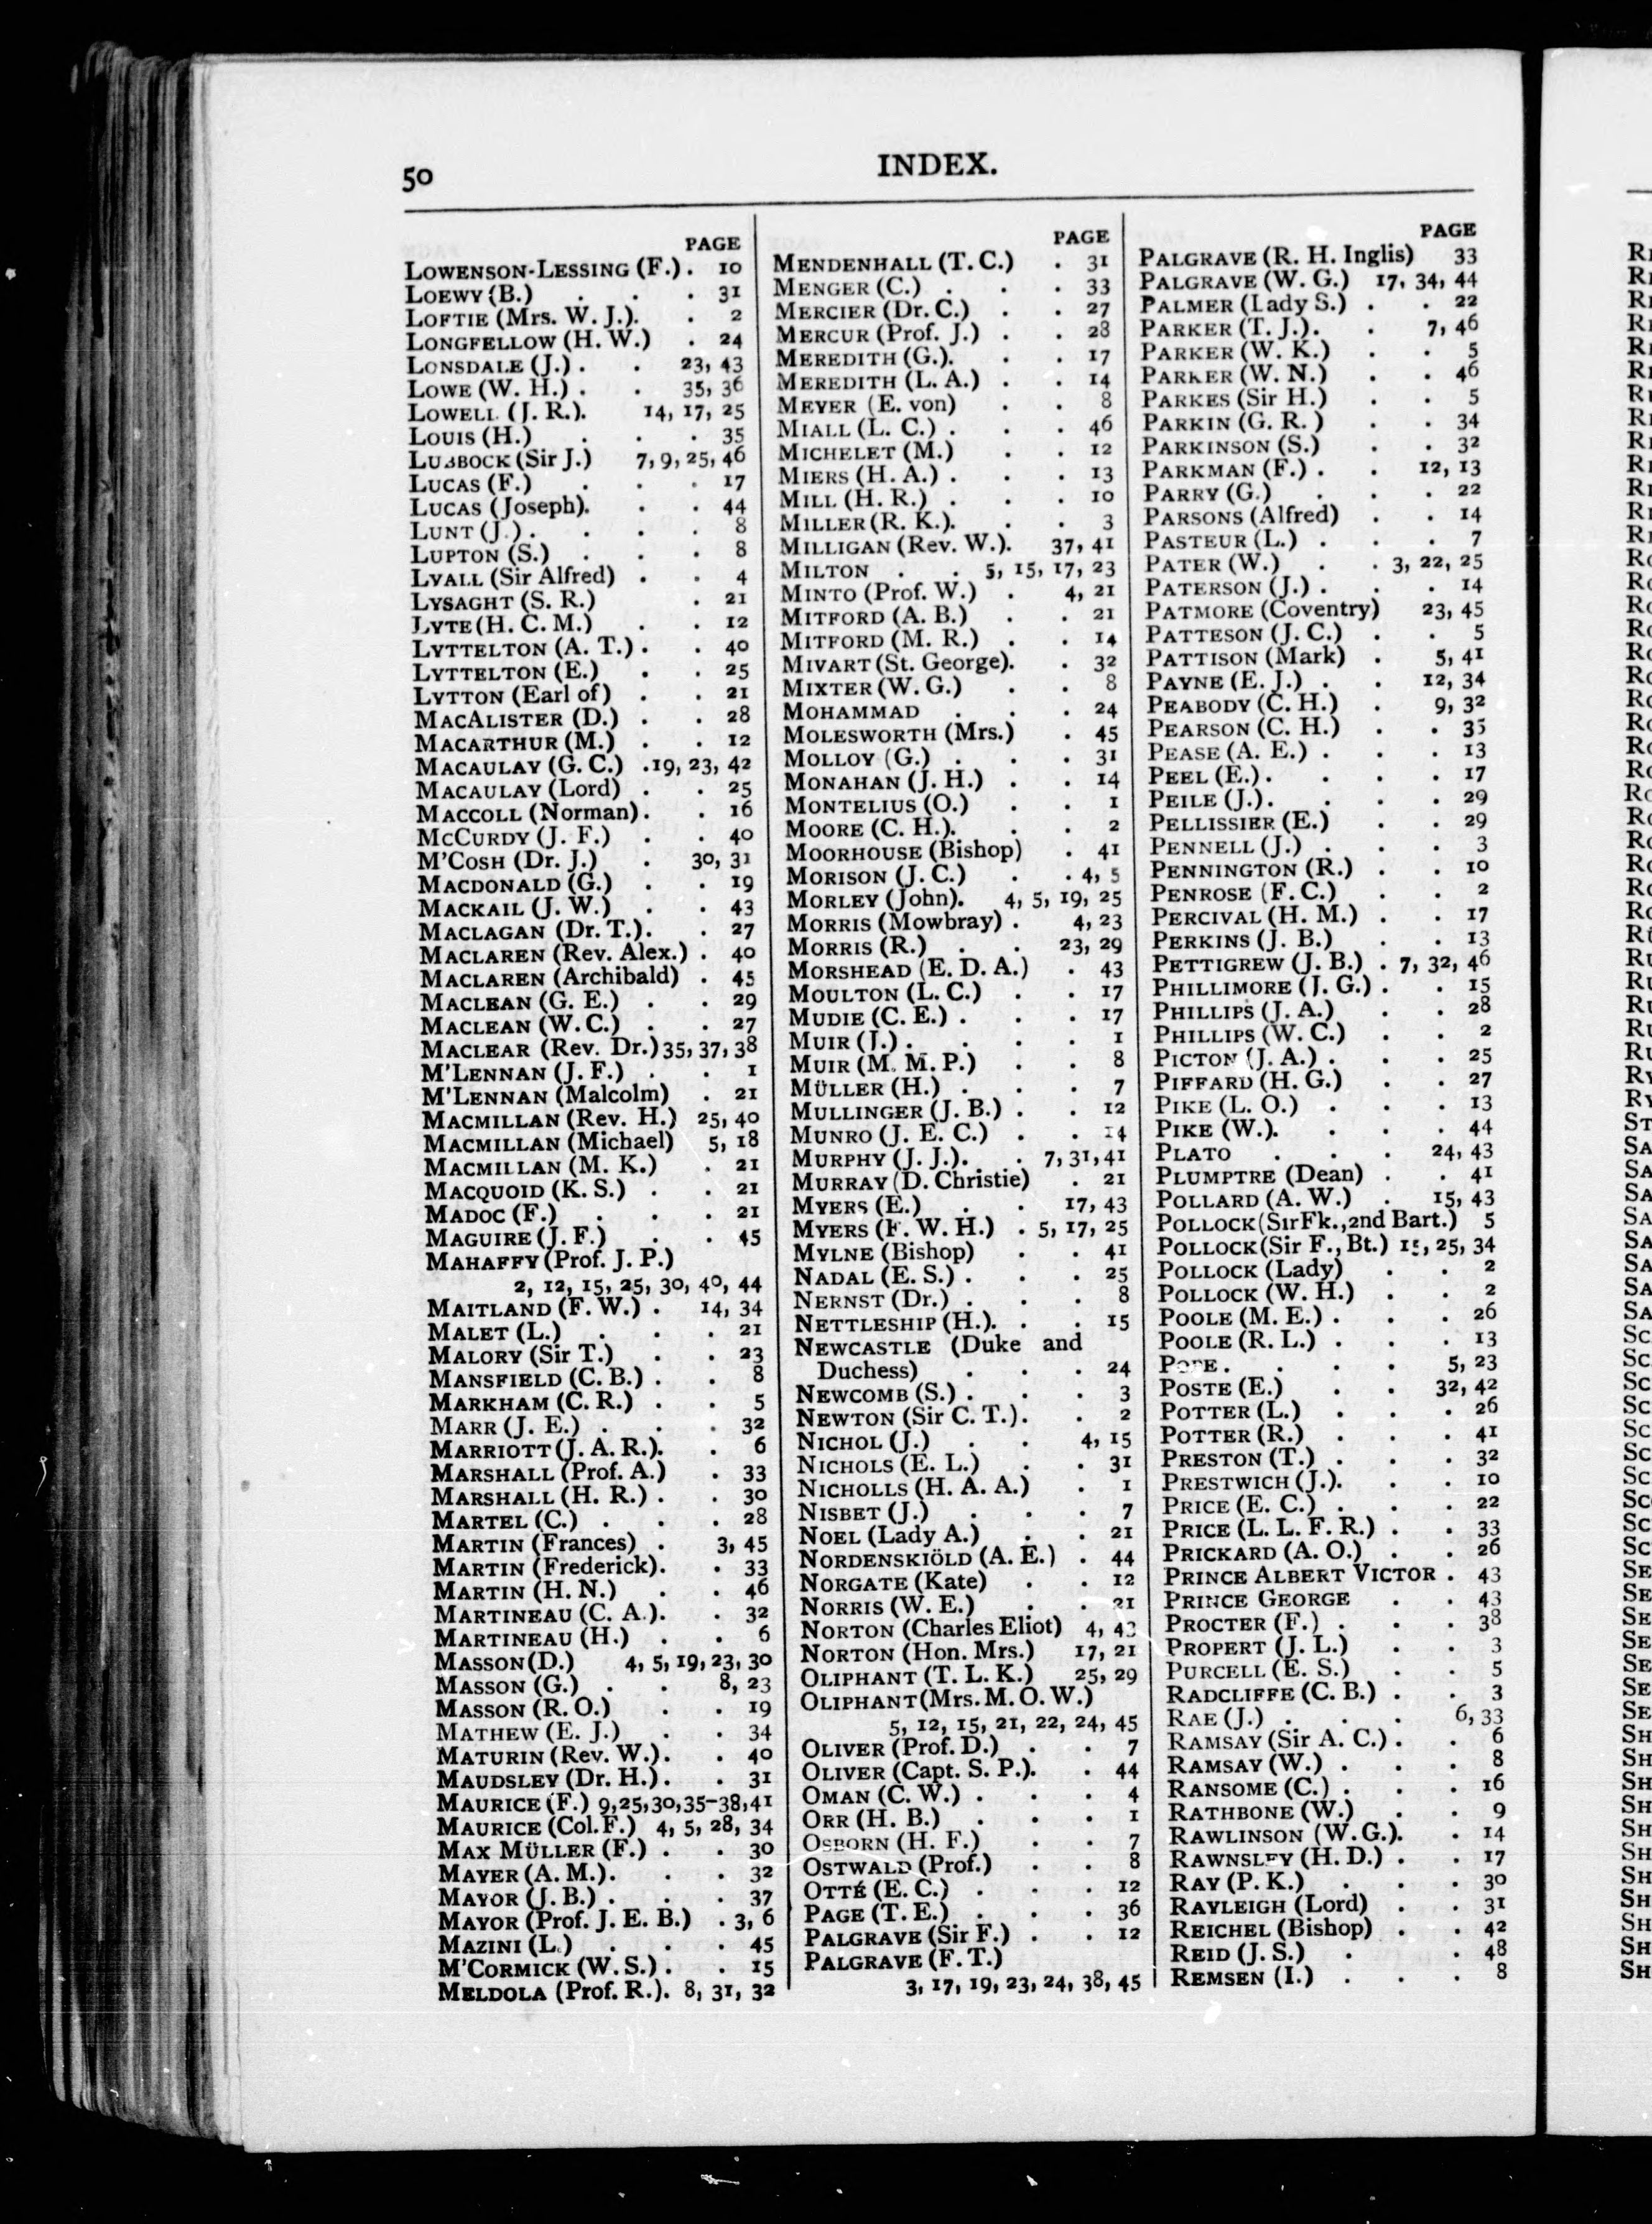 50
INDEX.
PAGE
LOWENSON-LESSING (F.) . 10
LOEWY (B.) . . . 31
LOFTIE (Mrs. W. J.). . 2
LONGFELLOW (H. W.) . 24
LONSDALE (J.) . . 23, 43
LOWE (W. H.) . . 35, 36
LOWELL (J. R.). 14, 17, 25
LOUIS (H.) . . . 35
LUBBOCK (Sir J.) 7, 9, 25, 46
LUCAS (F.) . . . 17
LUCAS (Joseph). . . 44
LUNT (J.) . . . . 8
LUPTON (S.) . . . 8
LYALL (Sir Alfred) . . 4
LYSAGHT (S. R.) . 21
LYTE (H. C. M.) . . 12
LYTTELTON (A. T.) . . 40
LYTTELTON (E.) . . 25
LYTTON (Earl of) . . 21
MACALISTER (D.) . . 28
MACARTHUR (M.) . . 12
MACAULAY (G. C.) . 19, 23, 42
MACAULAY (Lord) . . 25
MACCOLL (Norman) . . 16
MCCURDY (J. F.) . . 40
M'COSH (Dr. J.) . 30, 31
MACDONALD (G.) . . 19
MACKAIL (J. W.) . . 43
MACLAGAN (Dr. T.). . 27
MACLAREN (Rev. Alex.) . 40
MACLAREN (Archibald) . 45
MACLEAN (G. E.) . . 29
MACLEAN (W. C.) . . 27
MACLEAR (Rev. Dr.) 35, 37, 38
M'LENNAN (J. F.) . . 1
M'LENNAN (Malcolm) . 21
MACMILLAN (Rev. H.) 25, 40
MACMILLAN (Michael) 5, 18
MACMILLAN (M. K.) . 21
MACQUOID (K. S.) . . 21
MADOC (F.) . . . 21
MAGUIRE (J. F.) . . 45
MAHAFFY (Prof. J. P.)
2, 12, 15, 25, 30, 40, 44
MAITLAND (F. W.) . 14, 34
MALET (L.) . . . 21
MALORY (Sir T.) . . 23
MANSFIELD (C. B.) . . 8
MARKHAM (C. R.) . . 5
MARR (J. E.) . . . 32
MARRIOTT (J. A. R.). . 6
MARSHALL (Prof. A.) . 33
MARSHALL (H. R.) . . 30
MARTEL (C.) . . . 28
MARTIN (Frances) . 3, 45
MARTIN (Frederick). . 33
MARTIN (H. N.) . . 46
MARTINEAU (C. A.). . 32
MARTINEAU (H.) . . 6
MASSON (D.) 4, 5, 19, 23, 30
MASSON (G.) . . 8, 23
MASSON (R. O.) . . 19
MATHEW (E. J.) . . 34
MATURIN (Rev. W.). . 40
MAUDSLEY (Dr. H.). . 31
MAURICE (F.) 9, 25, 30, 35-38, 41
MAURICE (Col. F.) 4, 5, 28, 34
MAX MÜLLER (F.) . . 30
MAYER (A. M.). . . 32
MAYOR (J. B.) . . . 37
MAYOR (Prof. J. E. B.) . 3, 6
MAZINI (L.) . . . 45
M'CORMICK (W. S.) . . 15
MELDOLA (Prof. R.). 8, 31, 32
PAGE
MENDENHALL (T. C.) . 31
MENGER (C.) . . . 33
MERCIER (Dr. C.) . . 27
MERCUR (Prof. J.) . . 28
MEREDITH (G.). . . 17
MEREDITH (L. A.) . . 14
MEYER (E. von) . . 8
MIALL (L. C.) . . . 46
MICHELET (M.) . . 12
MIERS (H. A.) . . . 13
MILL (H. R.) . . . 10
MILLER (R. K.). . . 3
MILLIGAN (Rev. W.). 37, 41
MILTON . . 5, 15, 17, 23
MINTO (Prof. W.) . 4, 21
MITFORD (A. B.) . . 21
MITFORD (M. R.) . . 14
MIVART (St. George). . 32
MIXTER (W. G.) . . 8
MOHAMMAD . . . 24
MOLESWORTH (Mrs.) . 45
MOLLOY (G.) . . . 31
MONAHAN (J. H.) . . 14
MONTELIUS (O.) . . 1
MOORE (C. H.). . . 2
MOORHOUSE (Bishop) . 41
MORISON (J. C.) . . 4, 5
MORLEY (John). 4, 5, 19, 25
MORRIS (Mowbray) . 4, 23
MORRIS (R.) . . 23, 29
MORSHEAD (E. D. A.) . 43
MOULTON (L. C.) . . 17
MUDIE (C. E.) . . . 17
MUIR (J.) . . . . 1
MUIR (M. M. P.) . . 8
MÜLLER (H.) . . . 7
MULLINGER (J. B.) . . 12
MUNRO (J. E. C.) . . 14
MURPHY (J. J.). . 7, 31, 41
MURRAY (D. Christie) . 21
MYERS (E.) . . 17, 43
MYERS (F. W. H.) . 5, 17, 25
MYLNE (Bishop) . . 41
NADAL (E. S.) . . . 25
NERNST (Dr.) . . . 8
NETTLESHIP (H.). . . 15
NEWCASTLE (Duke and
Duchess) . . . 24
NEWCOMB (S.) . . . 3
NEWTON (Sir C. T.). . 2
NICHOL (J.) . . 4, 15
NICHOLS (E. L.) . . 31
NICHOLLS (H. A. A.) . 1
NISBET (J.) . . . 7
NOEL (Lady A.) . . 21
NORDENSKIÖLD (A. E.) . 44
NORGATE (Kate) . . 12
NORRIS (W. E.) . . 21
NORTON (Charles Eliot) 4, 43
NORTON (Hon. Mrs.) 17, 21
OLIPHANT (T. L. K.) 25, 29
OLIPHANT (Mrs. M. O. W.)
5, 12, 15, 21, 22, 24, 45
OLIVER (Prof. D.) . . 7
OLIVER (Capt. S. P.). . 44
OMAN (C. W.) . . . 4
ORR (H. B.) . . . 1
OSBORN (H. F.) . . 7
OSTWALD (Prof.) . . 8
OTTÉ (E. C.) . . . 12
PAGE (T. E.) . . . 36
PALGRAVE (Sir F.) . . 12
PALGRAVE (F. T.)
3, 17, 19, 23, 24, 38, 45
PAGE
PALGRAVE (R. H. Inglis) 33
PALGRAVE (W. G.) 17, 34, 44
PALMER (Lady S.) . . 22
PARKER (T. J.). . 7, 46
PARKER (W. K.) . . 5
PARKER (W. N.) . . 46
PARKES (Sir H.) . . 5
PARKIN (G. R.) . . 34
PARKINSON (S.) . . 32
PARKMAN (F.) . . 12, 13
PARRY (G.) . . . 22
PARSONS (Alfred) . . 14
PASTEUR (L.) . . . 7
PATER (W.) . . 3, 22, 25
PATERSON (J.) . . . 14
PATMORE (Coventry) 23, 45
PATTESON (J. C.) . . 5
PATTISON (Mark) . 5, 41
PAYNE (E. J.) . . 12, 34
PEABODY (C. H.) . 9, 32
PEARSON (C. H.) . . 35
PEASE (A. E.) . . . 13
PEEL (E.) . . . . 17
PEILE (J.). . . . 29
PELLISSIER (E.) . . 29
PENNELL (J.) . . . 3
PENNINGTON (R.) . . 10
PENROSE (F. C.) . . 2
PERCIVAL (H. M.) . . 17
PERKINS (J. B.) . . 13
PETTIGREW (J. B.) . 7, 32, 46
PHILLIMORE (J. G.) . . 15
PHILLIPS (J. A.) . . 28
PHILLIPS (W. C.) . . 2
PICTON (J. A.) . . . 25
PIFFARD (H. G.) . . 27
PIKE (L. O.) . . . 13
PIKE (W.). . . . 44
PLATO . . . 24, 43
PLUMPTRE (Dean) . . 41
POLLARD (A. W.) . 15, 43
POLLOCK (Sir Fk., 2nd Bart.) 5
POLLOCK (Sir F., Bt.) 15, 25, 34
POLLOCK (Lady) . . 2
POLLOCK (W. H.) . . 2
POOLE (M. E.) . . . 26
POOLE (R. L.) . . . 13
POPE . . . . 5, 23
POSTE (E.) . . 32, 42
POTTER (L.) . . . 26
POTTER (R.) . . . 41
PRESTON (T.) . . . 32
PRESTWICH (J.). . . 10
PRICE (E. C.) . . . 22
PRICE (L. L. F. R.) . . 33
PRICKARD (A. O.) . . 26
PRINCE ALBERT VICTOR . 43
PRINCE GEORGE . . 43
PROCTER (F.) . . . 38
PROPERT (J. L.) . . 3
PURCELL (E. S.) . . 5
RADCLIFFE (C. B.) . . 3
RAE (J.) . . . 6, 33
RAMSAY (Sir A. C.) . . 6
RAMSAY (W.) . . . 8
RANSOME (C.) . . . 16
RATHBONE (W.) . . 9
RAWLINSON (W. G.). . 14
RAWNSLEY (H. D.) . . 17
RAY (P. K.) . . . 30
RAYLEIGH (Lord) . . 31
REICHEL (Bishop) . . 42
REID (J. S.) . . 48
REMSEN (I.) . . . 8